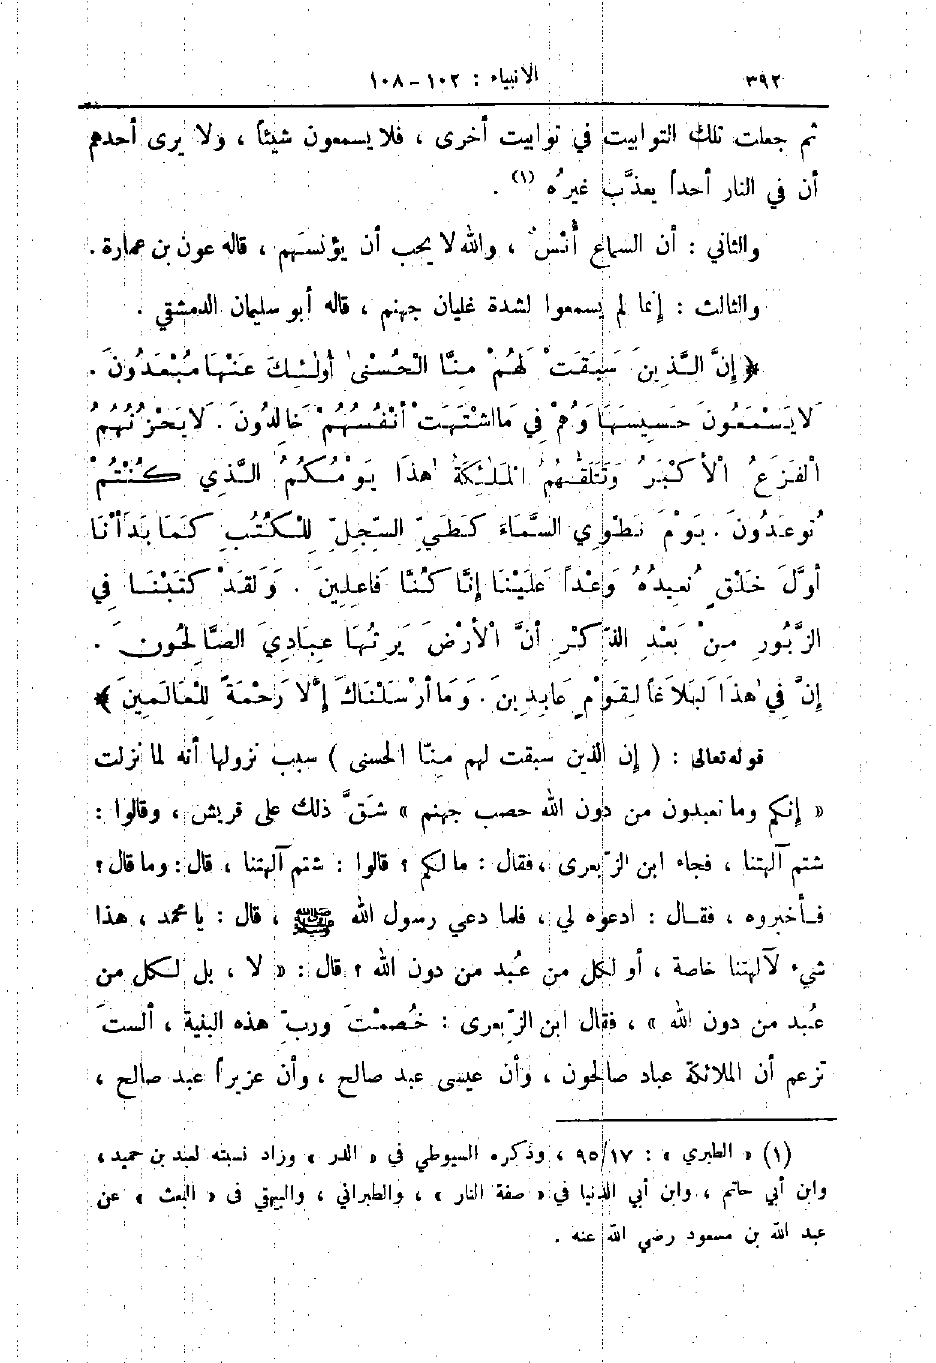 ٣٩٢ الانبياء : ١٠٢ – ١٠٨
ثم جعلت تلك التوابيت في توابيت أخرى ، فلا يسمعون شيئاً ، ولا يرى أحدهم
أن في النار أحداً يعذَّب غيرُه (١) .
والثاني : أن السماع أُنْسٌ ، والله لا يحب أن يؤنسَهم ، قاله عون بن عمارة .
والثالث : إنما لم يسمعوا لشدة غليان جهنم ، قاله أبو سليمان الدمشقي .
﴿ إِنَّ الَّذِينَ سَبَقَتْ لَهُمْ مِنَّا الْحُسْنىٰ أُولٰئِكَ عَنْهَا مُبْعَدُونَ .
لَايَسْمَعُونَ حَسِيسَهَا وَهُمْ فِي مَااشْتَهَتْ أَنْفُسُهُمْ خَالِدُونَ . لَايَحْزُنُهُمُ
الْفَزَعُ الْأَكْبَرُ وَتَتَلَقّٰهُمُ الْمَلٰئِكَةُ هٰذَا يَوْمُكُمُ الَّذِي كُنْتُمْ
تُوعَدُونَ . يَوْمَ نَطْوِي السَّمَاءَ كَطَيِّ السِّجِلِّ لِلْكُتُبِ كَمَا بَدَأْنَا
أَوَّلَ خَلْقٍ نُعِيدُهُ وَعْداً عَلَيْنَا إِنَّا كُنَّا فَاعِلِينَ . وَلَقَدْ كَتَبْنَا فِي
الزَّبُورِ مِنْ بَعْدِ الذِّكْرِ أَنَّ الْأَرْضَ يَرِثُهَا عِبَادِيَ الصَّالِحُونَ .
إِنَّ فِي هٰذَا لَبَلَاغاً لِقَوْمٍ عَابِدِينَ . وَمَا أَرْسَلْنَاكَ إِلَّا رَحْمَةً لِلْعَالَمِينَ ﴾
قوله تعالى : ( إن الذين سبقت لهم مِنّا الحسنى ) سبب نزولها أنه لما نزلت
« إنكم وما تعبدون من دون الله حصب جهنم » شَقَّ ذلك على قريش ، وقالوا :
شتم آلهتنا ، فجاء ابن الزِّبعرى ، فقال : ما لكم ؟ قالوا : شتم آلهتنا ، قال : وما قال ؟
فأخبروه ، فقال : ادعوه لي ، فلما دعي رسول الله ﷺ ، قال : يا محمد ، هذا
شيء لآلهتنا خاصة ، أو لكل من عُبد من دون الله ؟ قال : « لا ، بل لكل من
عُبد من دون الله » ، فقال ابن الزِّبعرى : خُصمْتَ وربِّ هذه البنية ، ألستَ
تزعم أن الملائكة عباد صالحون ، وأن عيسى عبد صالح ، وأن عزيراً عبد صالح ،
(١) « الطبري » : ٩٥/١٧ ، وذكره السيوطي في « الدر » وزاد نسبته لعبد بن حميد ،
وابن أبي حاتم ، وابن أبي الدنيا في « صفة النار » ، والطبراني ، والبيهقي في « البعث » عن
عبد الله بن مسعود رضي الله عنه .